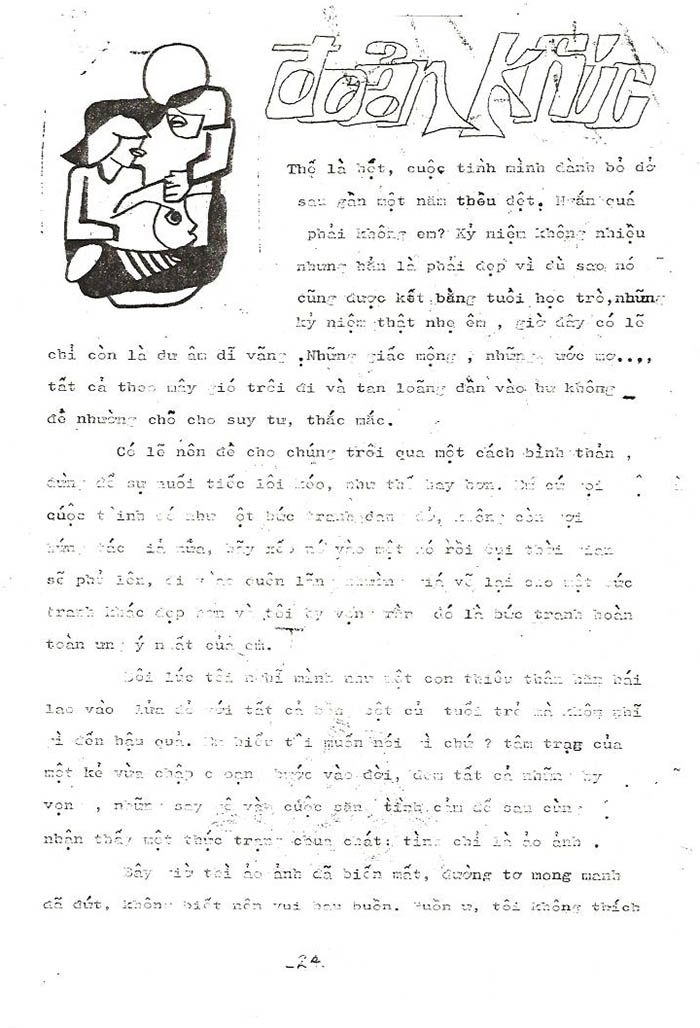 đoản khúc
Thế là hết, cuộc tình mình đành bỏ dở
sau gần một năm thêu dệt. Ngắn quá
phải không em? Kỷ niệm không nhiều
nhưng hẳn là phải đẹp vì dù sao nó
cũng được kết bằng tuổi học trò,những
kỷ niệm thật nhẹ êm , giờ đây có lẽ
chỉ còn là dư âm dĩ vãng .Những giấc mộng , những ước mơ..,,
tất cả theo mây gió trôi đi và tan loãng dần vào hư không
để nhường chỗ cho suy tư, thắc mắc.
Có lẽ nên để cho chúng trôi qua một cách bình thản ,
đừng để sự nuối tiếc lôi kéo, như thế hay hơn. Em cứ gọi
cuộc tình đó như một bức tranh dang dở, không còn gợi
hứng tác giả nữa, hãy xếp nó vào một xó rồi bụi thời gian
sẽ phủ lên, đi vào quên lãng nhường giá vẽ lại cho một bức
tranh khác đẹp hơn và tôi hy vọng rằng đó là bức tranh hoàn
toàn ưng ý nhất của em.
Đôi lúc tôi nghĩ mình như một con thiêu thân hăng hái
lao vào lửa đỏ với tất cả bồng bột của tuổi trẻ mà không nghĩ
gì đến hậu quả. Em hiểu tôi muốn nói gì chứ ? tâm trạng của
một kẻ vừa chập choạng bước vào đời, đem tất cả những hy
vọng , những say mê vào cuộc săn tình cảm để sau cùng
nhận thấy một thực trạng chua chát: tình chỉ là ảo ảnh .
Bây giờ thì ảo ảnh đã biến mất, đường tơ mong manh
đã đứt, không biết nên vui hay buồn. Buồn ư, tôi không thích
_24.